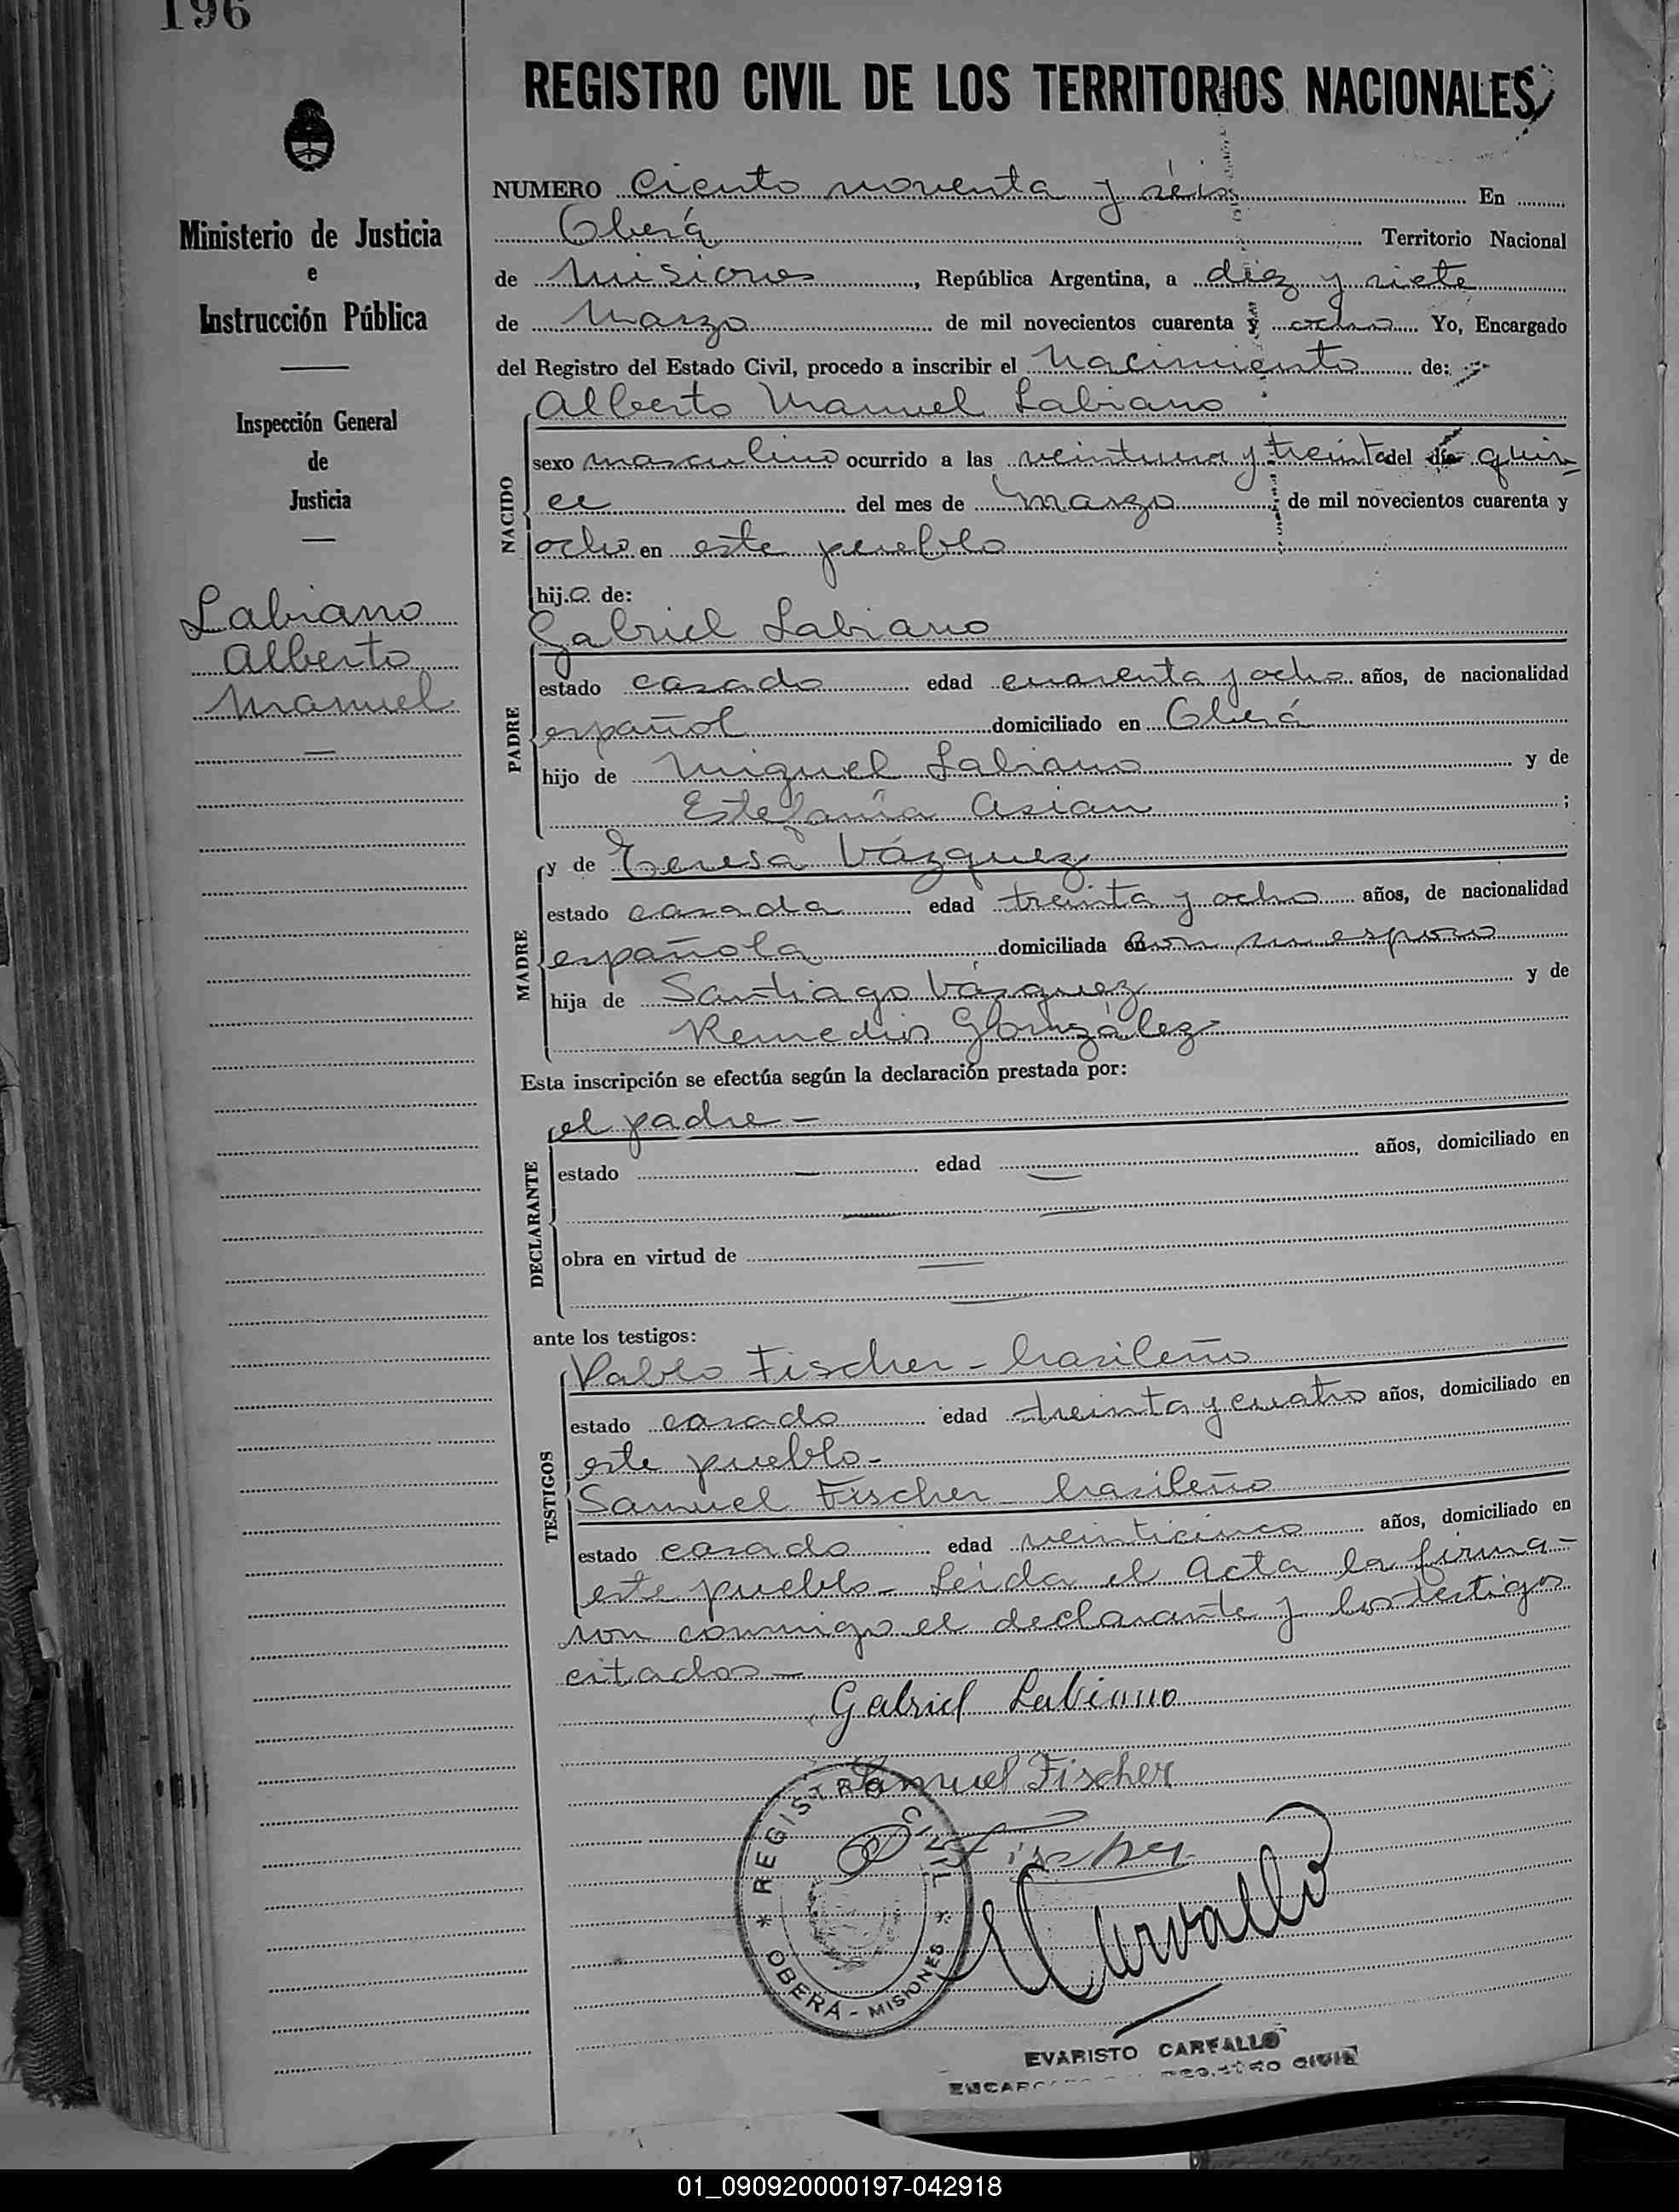 196
REGISTRO CIVIL DE LOS TERRITORIOS NACIONALES
Ministerio de Justicia
e
Instrucción Pública
Inspección General
de
Justicia
Labiano
Alberto
Manuel
NUMERO Ciento noventa y séis En
Oberá Territorio Nacional
de Misiones, República Argentina, a diez y siete
de Marzo de mil novecientos cuarenta y ocho Yo, Encargado
del Registro del Estado Civil, procedo a inscribir el Nacimiento de:
Alberto Manuel Labiano
NACIDO
sexo masculino ocurrido a las veintiuna y treinta del día quin-
ce del mes de marzo de mil novecientos cuarenta y
ocho en este pueblo
hijo de:
Gabriel Labiano
PADRE
estado casado edad cuarenta y ocho años, de nacionalidad
español domiciliado en Oberá
hijo de Miguel Labiano y de
Estefanía Asian;
MADRE
y de Teresa Vázquez
estado casada edad treinta y ocho años, de nacionalidad
española domiciliada con su esposo
hija de Santiago Vázquez y de
Remedios González
Esta inscripción se efectúa según la declaración prestada por:
el padre -
DECLARANTE
estado edad años, domiciliado en
obra en virtud de
ante los testigos:
TESTIGOS
Pablo Fischer - brasileño
estado casado edad treinta y cuatro años, domiciliado en
este pueblo -
Samuel Fischer - brasileño
estado casado edad veinticinco años, domiciliado en
este pueblo - Leída el Acta la firma-
ron conmigo el declarante y los testigos
citados -
Gabriel Labiano
Samuel Fischer
P Fischer
REGISTRO CIVIL
* OBERÁ - MISIONES *
ECarvallo
EVARISTO CARVALLO
ENCARGADO REGISTRO CIVIL
01_090920000197-042918